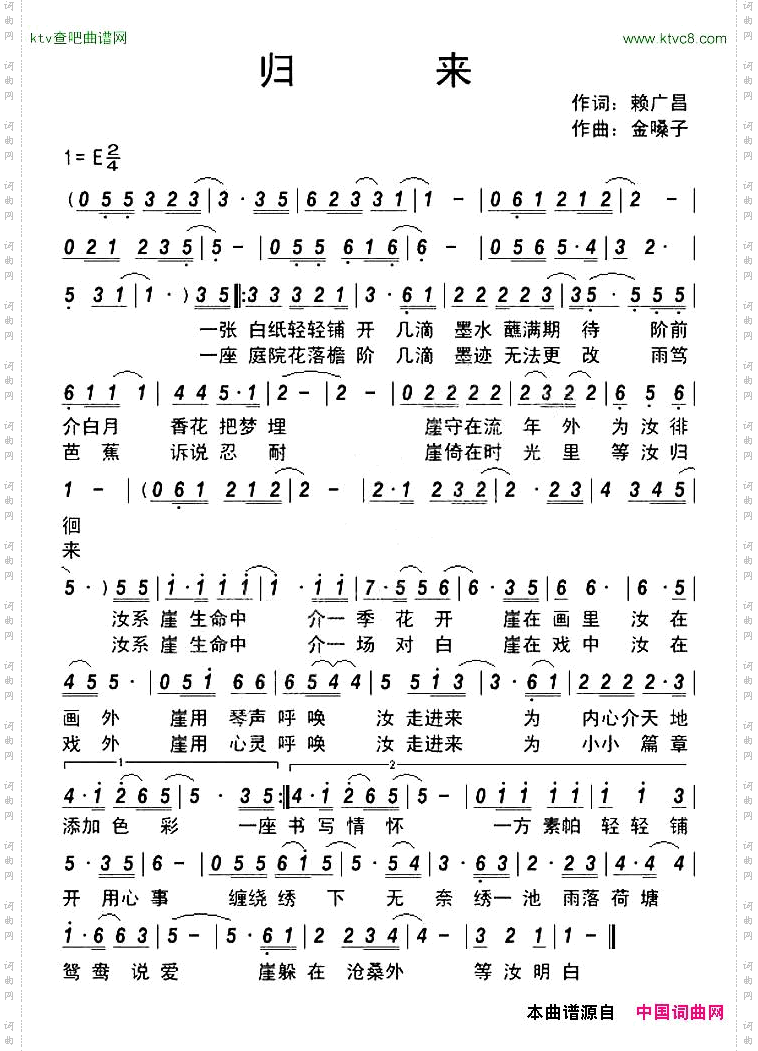 ktv查吧曲谱网 www.ktvc8.com
归 来
作词：赖广昌
作曲：金嗓子
1=E 2/4
(0 5 5 3 2 3 | 3 · 3 5 | 6 2 3 3 1 | 1 - | 0 6 1 2 1 2 | 2 - |
0 2 1 2 3 5 | 5 - | 0 5 5 6 1 6 | 6 - | 0 5 6 5 · 4 | 3 2 · |
5 3 1 | 1 · ) 3 5 |: 3 3 3 2 1 | 3 · 6 1 | 2 2 2 2 3 | 3 5 · 5 5 5 |
一张 白纸轻轻铺 开 几滴 墨水 蘸满期 待 阶前
一座 庭院花落檐 阶 几滴 墨迹 无法更 改 雨笃
6 1 1 1 | 4 4 5 · 1 | 2 - | 2 - | 0 2 2 2 2 | 2 3 2 2 | 6 5 6 |
介白月 香花 把梦 埋 崖守在流 年 外 为 汝 徘
芭 蕉 诉说 忍 耐 崖倚在时 光 里 等 汝 归
1 - | (0 6 1 2 1 2 | 2 - | 2 · 1 2 3 2 | 2 · 2 3 | 4 3 4 5 |
徊
来
5 · ) 5 5 | 1 · 1 1 1 | 1 · 1 1 | 7 · 5 5 6 | 6 · 3 5 | 6 6 5 6 |
汝系 崖 生命中 介一 季 花 开 崖在 画 里 汝 在
汝系 崖 生命中 介一 场 对 白 崖在 戏 中 汝 在
4 5 5 · | 0 5 1 6 6 | 6 5 4 4 | 5 5 1 3 | 3 · 6 1 | 2 2 2 2 · 3 |
画 外 崖用 琴声 呼 唤 汝 走进来 为 内心介天 地
戏 外 崖用 心灵 呼 唤 汝 走进来 为 小小 篇 章
1 2
4 · 1 2 6 5 | 5 · 3 5 :| 4 · 1 2 6 5 | 5 - | 0 1 1 1 1 | 1 1 3 |
添加 色 彩 一座 书 写 情 怀 一方 素帕 轻 轻 铺
5 · 3 5 | 6 - | 0 5 5 6 1 5 | 5 · 5 4 | 3 · 6 3 | 2 · 2 3 | 4 · 4 4 |
开 用心 事 缠绕 绣 下 无 奈 绣一 池 雨落 荷 塘
1 · 6 6 3 | 5 - | 5 · 6 1 | 2 2 3 4 | 4 - | 3 2 1 | 1 - ‖
鸳 鸯 说 爱 崖躲 在 沧桑外 等 汝 明 白
本曲谱源自 中国词曲网